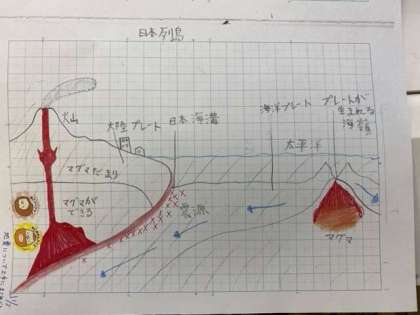 日本列島
火山
大陸プレート
日本海溝
海洋プレート
プレートが
生まれる
海嶺
太平洋
マグマだまり
マグマが
できる
震源
マグマ